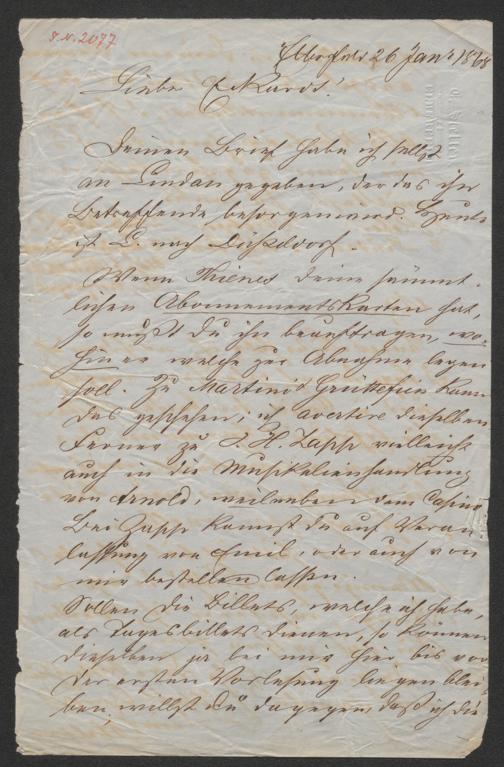 S.N. 2077
Elberfeld 26 Jan. 1868
Liebe Eckards!
Deinen Brief habe ich selbst
an Lindau gegeben, der das ihn
Betreffende besorgen wird. Heute
ist L. nach Düsseldorf.
Wenn Thienes deine sämmt-
lichen Abonnementskarten hat,
so mußt du ihn beauftragen, wo-
hin er welche zur Abnahme legen
soll. Zu Martino Grüttefien kann
das geschehen; ich avertire dieselben
Ferner zu J. H. Zapp vielleicht
auch in die Musikalienhandlung
von Arnold, weil neben dem Casino.
Bei Zapp kannst du auf Veran-
lassung von Emil, oder auch von
mir bestellen lassen.
Sollen die Billets, welche ich habe,
als Tagesbillets dienen, so können
dieselben ja bei mir hier bis vor
der ersten Vorlesung liegen blei-
ben, willst du dagegen daß ich die